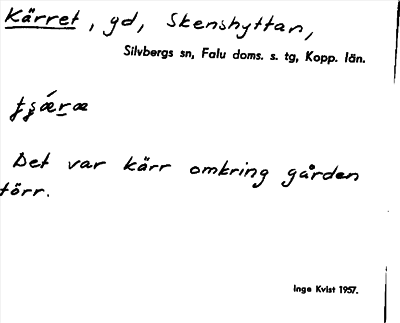 Kärret, gd, Skenshyttan,
Silvbergs sn, Falu doms. s. tg, Kopp. län.
Det var kärr omkring gården
förr.
Inge Kvist 1957.